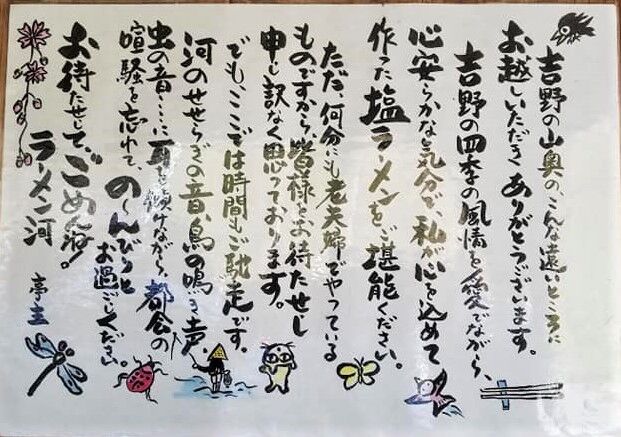 吉野の山奥の、こんな遠いところに
お越しいただき ありがとうございます。
吉野の四季の風情を愛でながら、
心安らかな気分で、私が心を込めて
作った塩ラーメンをご堪能ください。
ただ、何分にも老夫婦でやっている
ものですから、皆様をお待たせし
申し訳なく思っております。
でも、ここでは時間もご馳走です。
河のせせらぎの音、鳥の鳴き声、
虫の音…に耳を傾けながら、都会の
喧騒を忘れて、の〜んびりとお過ごしください。
お待たせして、ごめんね!
ラーメン河 亭主